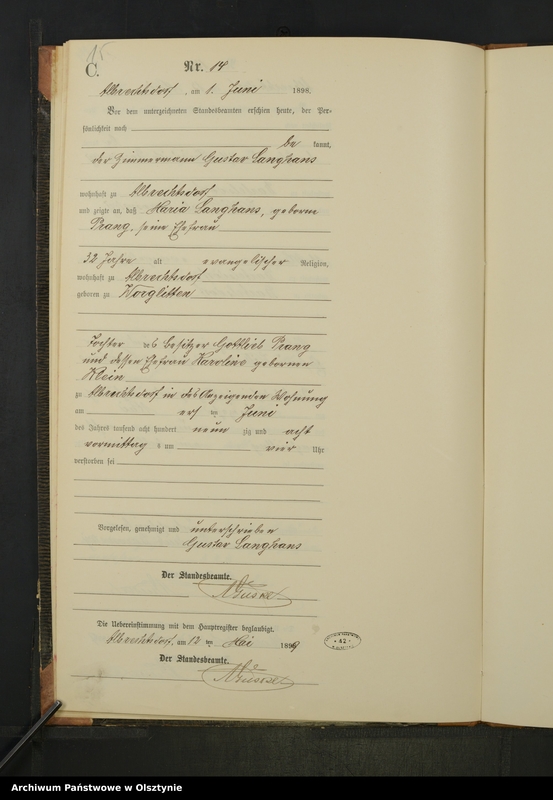 15
C.
Nr. 14
Albrechtsdorf, am 1. Juni 1898.
Vor dem unterzeichneten Standesbeamten erschien heute, der Per-
sönlichkeit nach
be kannt,
der Zimmermann Gustav Langhans
wohnhaft zu Albrechtsdorf
und zeigte an, daß Maria Langhans, geborne
Prang, seine Ehefrau
32 Jahre alt evangelischer Religion,
wohnhaft zu Albrechtsdorf
geboren zu Worglitten
Tochter des Besitzer Gottlieb Prang
und dessen Ehefrau Karoline gebornen
Klein
zu Albrechtsdorf in des Anzeigenden Wohnung
am ersten Juni
des Jahres tausend acht hundert neun zig und acht
vormittag s um vier Uhr
verstorben sei
Vorgelesen, genehmigt und unterschrieben
Gustav Langhans
Der Standesbeamte.
Die Uebereinstimmung mit dem Hauptregister beglaubigt.
Albrechtsdorf, am 12 ten Mai 1899
Der Standesbeamte.
42
Archiwum Państwowe w Olsztynie